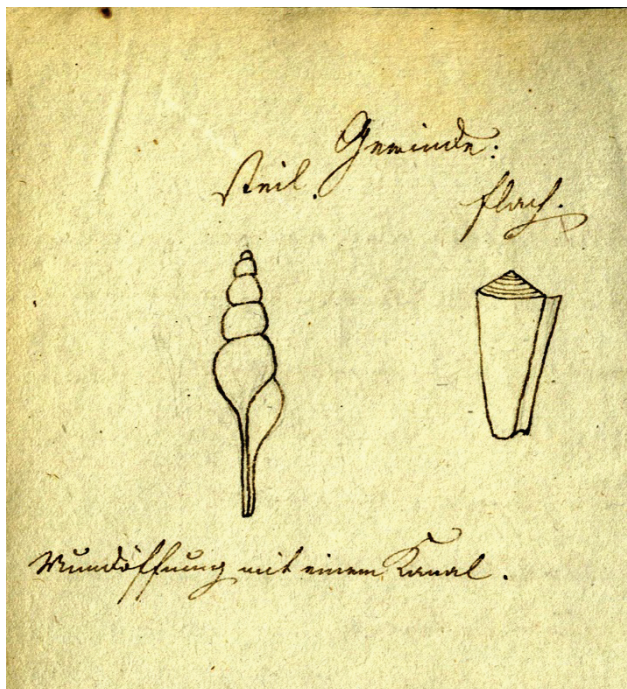 Gewinde:
steil.
flach.
Mundöffnung mit einem Kanal.